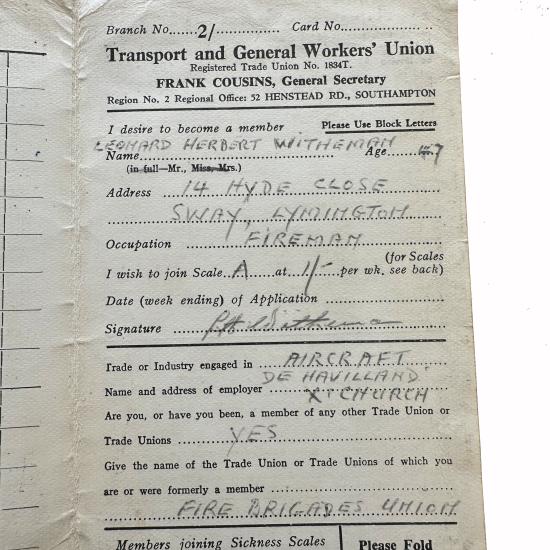 Branch No......2/............... Card No.....................
Transport and General Workers' Union
Registered Trade Union No. 1834T.
FRANK COUSINS, General Secretary
Region No. 2 Regional Office: 52 HENSTEAD RD., SOUTHAMPTON
I desire to become a member Please Use Block Letters
LEONARD HERBERT WITHEMAN
Name........................................ Age.....47
(in full—Mr., Miss, Mrs.)
Address 14 HYDE CLOSE
SWAY, LYMINGTON
Occupation FIREMAN
(for Scales
I wish to join Scale..A....at..1/-..per wk. see back)
Date (week ending) of Application ........................
Signature L H Witheman
Trade or Industry engaged in AIRCRAFT
DE HAVILLAND
Name and address of employer XT CHURCH
Are you, or have you been, a member of any other Trade Union or
Trade Unions YES
Give the name of the Trade Union or Trade Unions of which you
are or were formerly a member
FIRE BRIGADES UNION
Members joining Sickness Scales
Please Fold